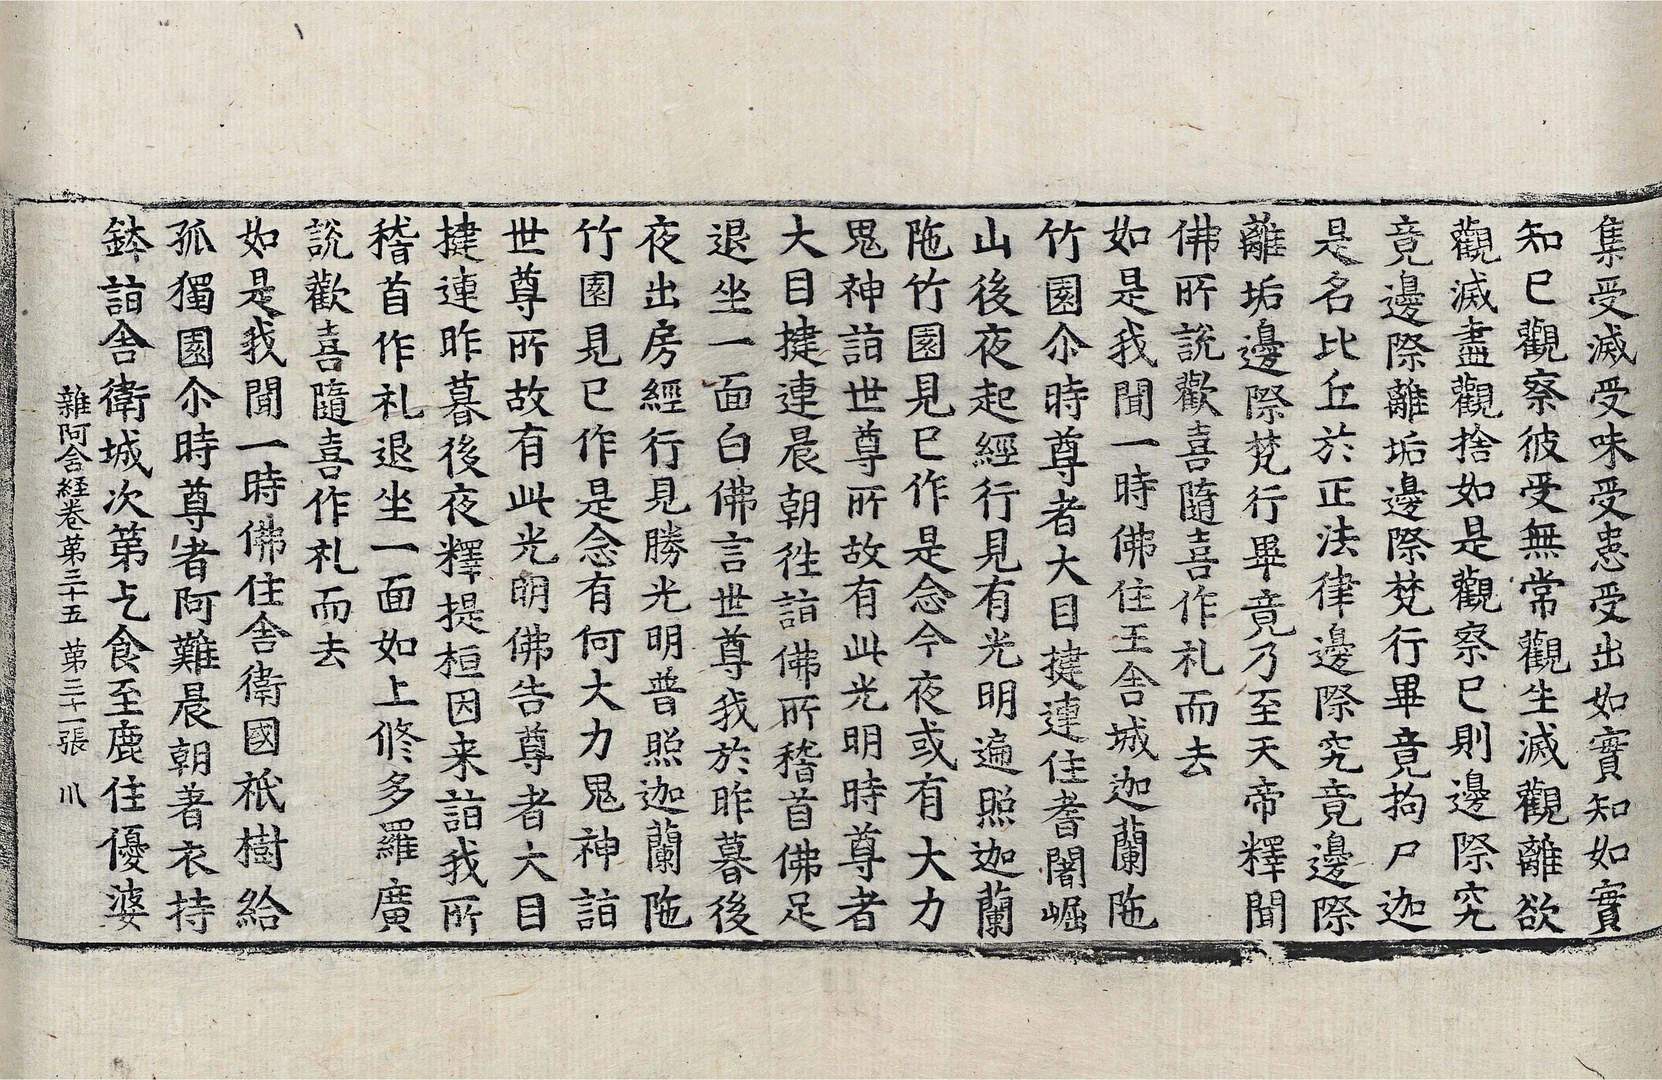 集受滅受味受患受出如實知如實
知已觀察彼受無常觀生滅觀離欲
觀滅盡觀捨如是觀察已則邊際究
竟邊際離垢邊際梵行畢竟拘尸迦
是名比丘於正法律邊際究竟邊際
離垢邊際梵行畢竟乃至天帝釋聞
佛所說歡喜隨喜作礼而去
如是我聞一時佛住王舍城迦蘭陁
竹園尒時尊者大目揵連住耆闍崛
山後夜起經行見有光明遍照迦蘭
陁竹園見已作是念今夜或有大力
鬼神詣世尊所故有此光明時尊者
大目揵連晨朝往詣佛所稽首佛足
退坐一面白佛言世尊我於昨暮後
夜出房經行見勝光明普照迦蘭陁
竹園見已作是念有何大力鬼神詣
世尊所故有此光明佛告尊者大目
揵連昨暮後夜釋提桓因来詣我所
稽首作礼退坐一面如上修多羅廣
說歡喜隨喜作礼而去
如是我聞一時佛住舍衛國祇樹給
孤獨園尒時尊者阿難晨朝著衣持
鉢詣舍衛城次第乞食至鹿住優婆
雜阿含経卷第三十五 第三十一張 川